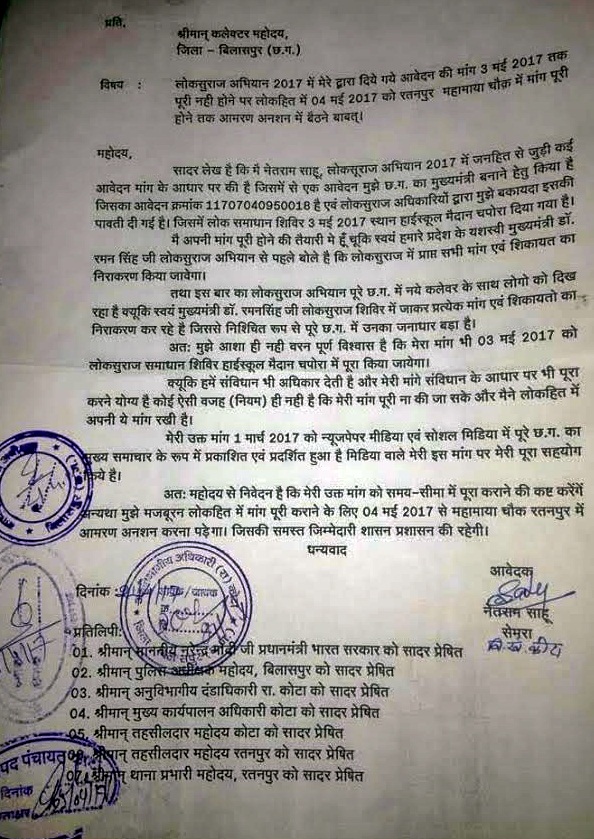 प्रति,
श्रीमान् कलेक्टर महोदय,
जिला – बिलासपुर (छ.ग.)
विषय : लोकसुराज अभियान 2017 में मेरे द्वारा दिये गये आवेदन की मांग 3 मई 2017 तक
पूरी नही होने पर लोकहित में 04 मई 2017 को रतनपुर महामाया चौक्र में मांग पूरी
होने तक आमरण अनशन में बैठने बाबत्।
महोदय,
सादर लेख है कि मै नेतराम साहू, लोकसूराज अभियान 2017 में जनहित से जुड़ी कई
आवेदन मांग के आधार पर की है जिसमें से एक आवेदन मुझे छ.ग. का मुख्यमंत्री बनाने हेतु किया है
जिसका आवेदन क्रमांक 11707040950018 है एवं लोकसुराज अधिकारियों द्वारा मुझे बकायदा इसकी
पावती दी गई है। जिसमें लोक समाधान शिविर 3 मई 2017 स्थान हाईस्कूल मैदान चपोरा दिया गया है।
मै अपनी मांग पूरी होने की तैयारी मे हूँ चूकि स्वयं हमारे प्रदेश के यशस्वी मुख्यमंत्री डॉ.
रमन सिंह जी लोकसुराज अभियान से पहले बोले है कि लोकसुराज में प्राप्त सभी मांग एवं शिकायत का
निराकरण किया जावेगा।
तथा इस बार का लोकसुराज अभियान पूरे छ.ग. में नये कलेवर के साथ लोगो को दिख
रहा है क्यूकि स्वयं मुख्यमंत्री डॉ. रमनसिंह जी लोकसुराज शिविर में जाकर प्रत्येक मांग एवं शिकायतो का
निराकरण कर रहे है जिससे निश्चित रूप से पूरे छ.ग. में उनका जनाधार बड़ा है।
अत: मुझे आशा ही नही वरन पूर्ण विश्वास है कि मेरा मांग भी 03 मई 2017 को
लोकसुराज समाधान शिविर हाईस्कूल मैदान चपोरा में पूरा किया जायेगा।
क्यूकि हमें संविधान भी अधिकार देती है और मेरी मांगे संविधान के आधार पर भी पूरा
करने योग्य है कोई ऐसी वजह (नियम) ही नही है कि मेरी मांग पूरी ना की जा सके और मैने लोकहित में
अपनी ये मांग रखी है।
मेरी उक्त मांग 1 मार्च 2017 को न्यूजपेपर मीडिया एवं सोशल मिडिया में पूरे छ.ग. का
मुख्य समाचार के रूप में प्रकाशित एवं प्रदर्शित हुआ है मिडिया वाले मेरी इस मांग पर मेरी पूरा सहयोग
किये है।
अत: महोदय से निवेदन है कि मेरी उक्त मांग को समय-सीमा में पूरा कराने की कष्ट करेंगें
अन्यथा मुझे मजबूरन लोकहित में मांग पूरी कराने के लिए 04 मई 2017 से महामाया चौक रतनपुर में
आमरण अनशन करना पड़ेगा। जिसकी समस्त जिम्मेदारी शासन प्रशासन की रहेगी।
धन्यवाद
आवेदक
दिनांक :
नेतराम साहू
सेमरा
वि.ख. कोटा
प्रतिलिपी:
01. श्रीमान् माननीय नरेन्द्र मोदी जी प्रधानमंत्री भारत सरकार को सादर प्रेषित
02. श्रीमान् पुलिस अधीक्षक महोदय, बिलासपुर को सादर प्रेषित
03. श्रीमान् अनुविभागीय दंडाधिकारी रा. कोटा को सादर प्रेषित
04. श्रीमान् मुख्य कार्यपालन अधिकारी कोटा को सादर प्रेषित
05. श्रीमान् तहसीलदार महोदय कोटा को सादर प्रेषित
06. श्रीमान् तहसीलदार महोदय रतनपुर को सादर प्रेषित
07. श्रीमान् थाना प्रभारी महोदय, रतनपुर को सादर प्रेषित
पद पंचायत
दिनांक